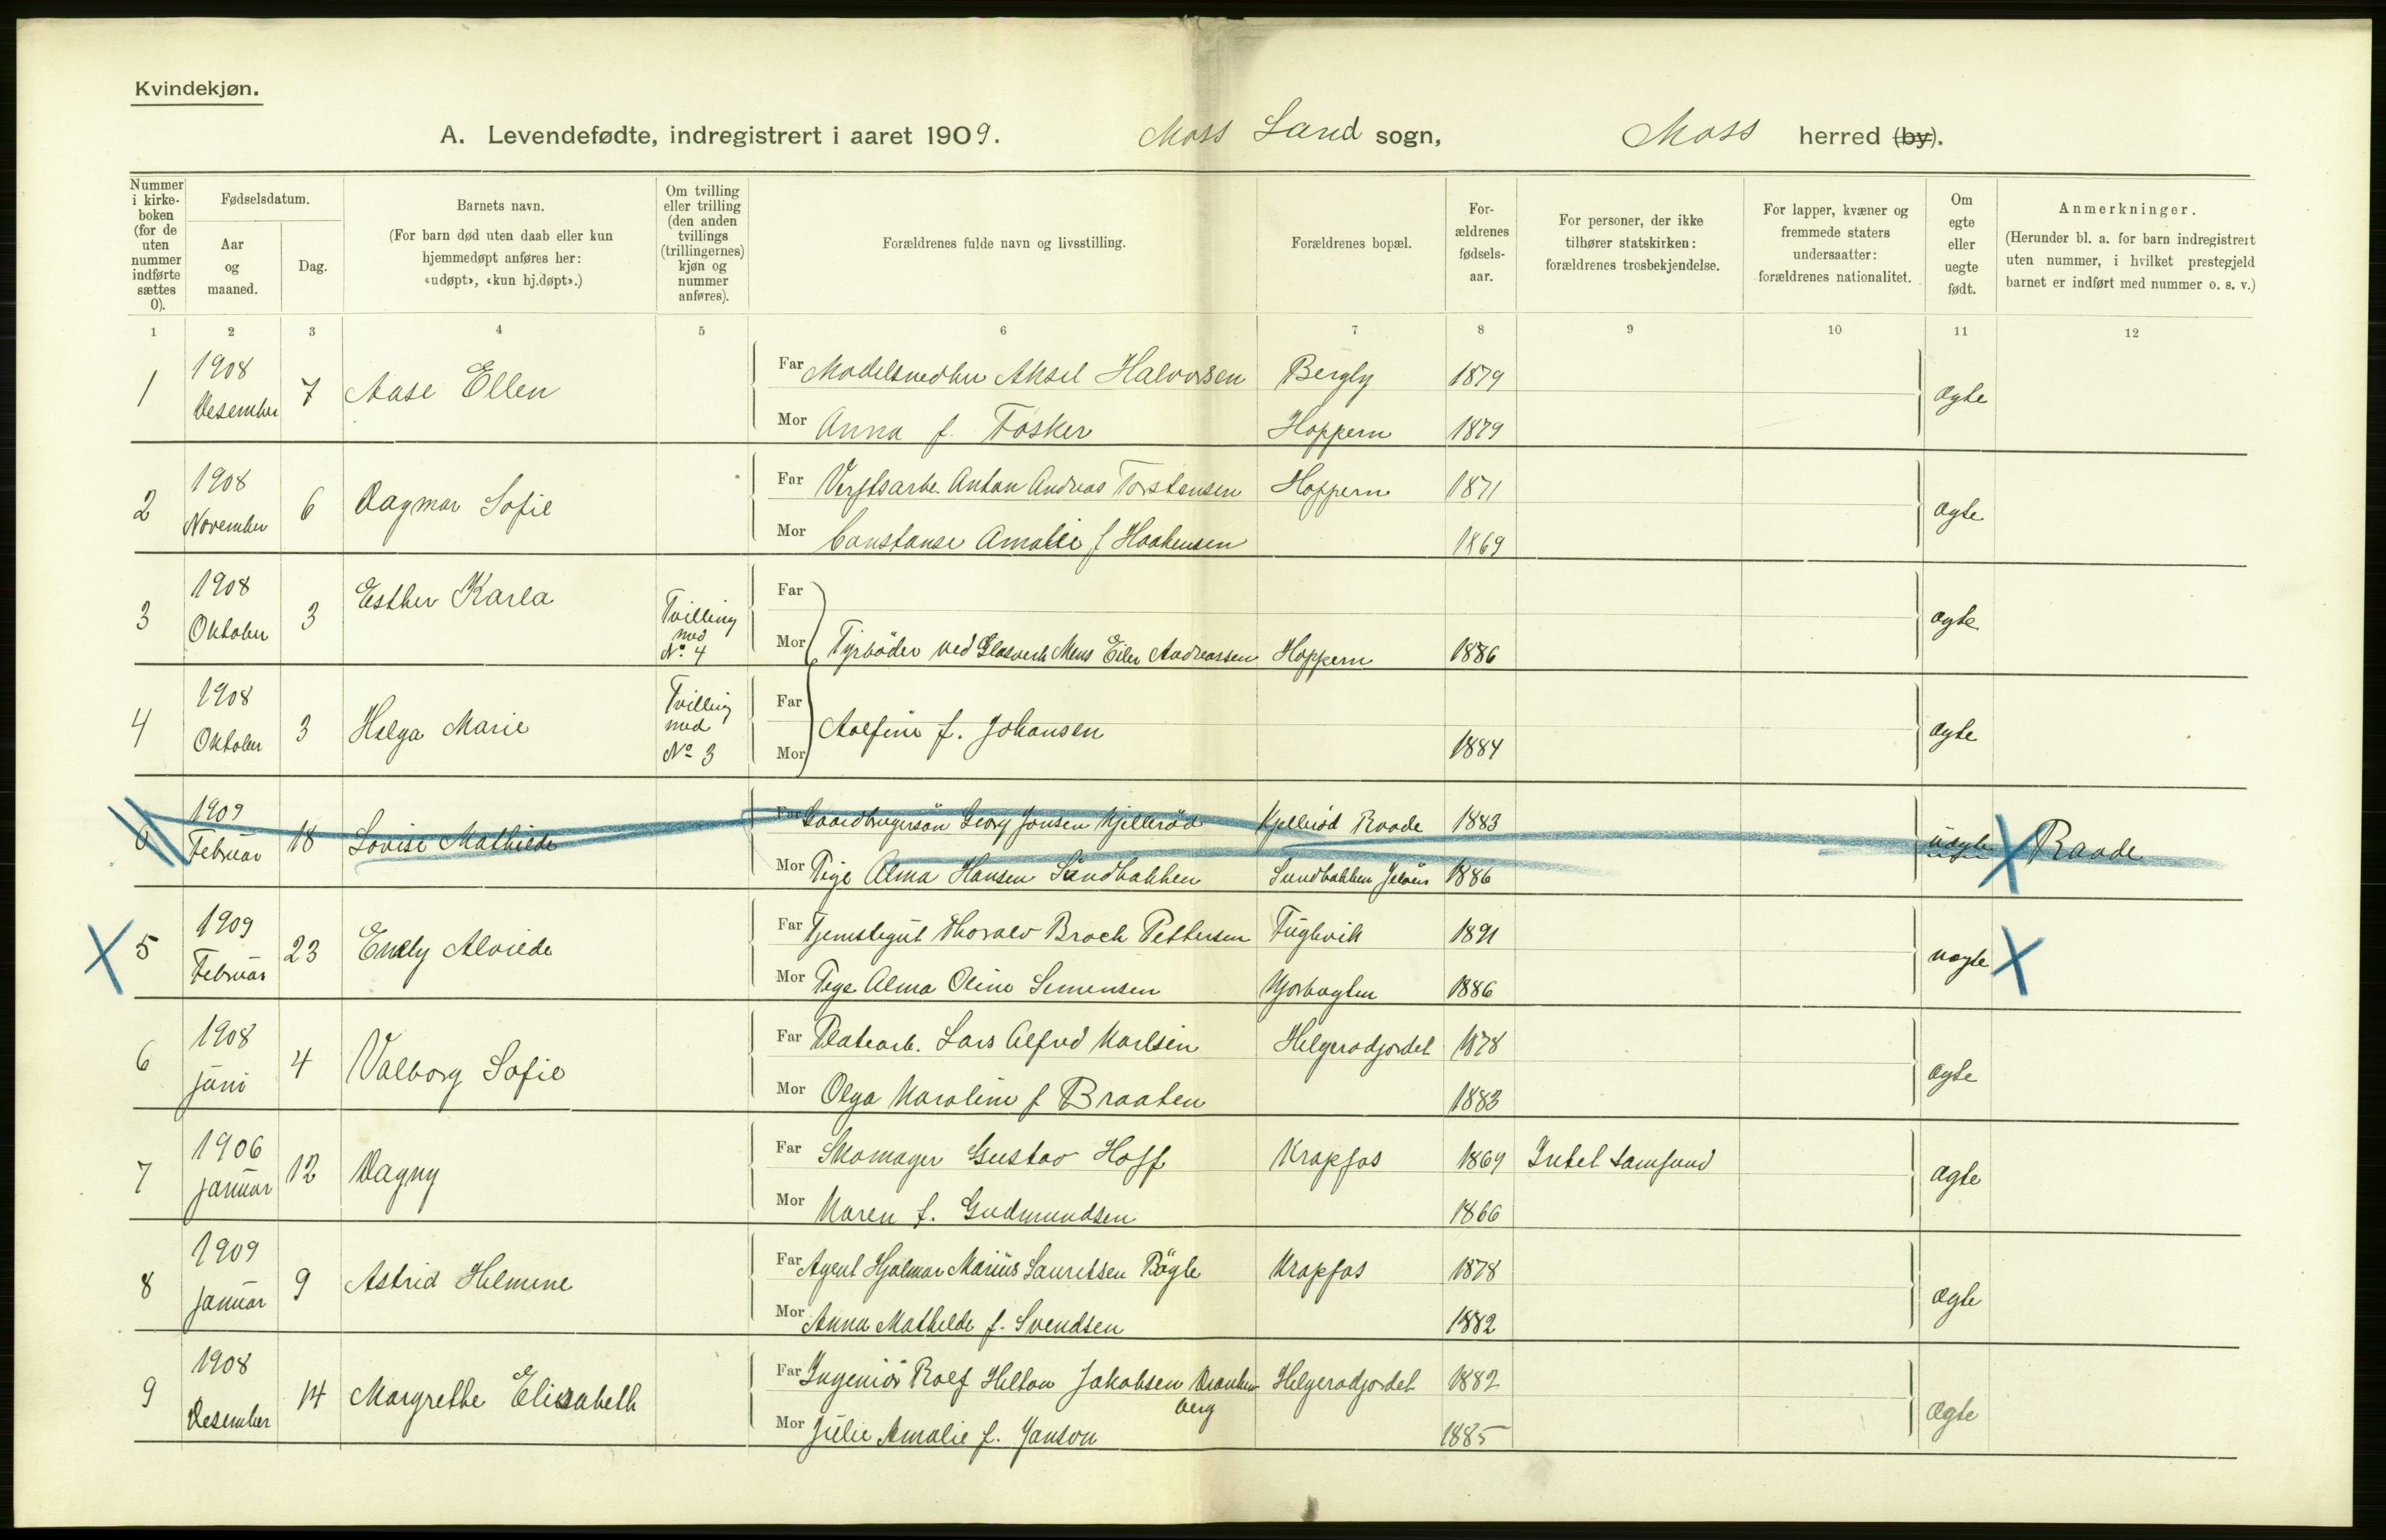 Kvindekjøn.
A. Levendefødte, indregistrert i aaret 1909. Moss Land sogn, Moss herred (by).
Nummer i kirke-boken (for de uten nummer indførte sættes 0).
Fødselsdatum.
Aar og maaned.
Dag.
Barnets navn.
(For barn død uten daab eller kun hjemmedøpt anføres her: «udøpt», «kun hj.døpt».)
Om tvilling eller trilling (den anden tvillings (trillingernes) kjøn og nummer anføres).
Forældrenes fulde navn og livsstilling.
Forældrenes bopæl.
For-ældrenes fødsels-aar.
For personer, der ikke tilhører statskirken: forældrenes trosbekjendelse.
For lapper, kvæner og fremmede staters undersaatter: forældrenes nationalitet.
Om egte eller uegte født.
Anmerkninger.
(Herunder bl. a. for barn indregistrert uten nummer, i hvilket prestegjeld barnet er indført med nummer o. s. v.)
1 2 3 4 5 6 7 8 9 10 11 12
1 1908 Desember 7 Aase Ellen
Far Modelsnedker Aksel Halvorsen Bergly 1879
Mor Anna f. Fosker Hoppern 1879
ægte
2 1908 November 6 Dagmar Sofie
Far Verftsarb. Anton Andreas Torstensen Hoppern 1871
Mor Constanse Amalie f Haakensen 1869
ægte
3 1908 Oktober 3 Esther Karla Tvilling med No 4
Far
Mor Fyrbøder ved Glasverk Mens Eiler Andreassen Hoppern 1886
ægte
4 1908 Oktober 3 Helga Marie Tvilling med No 3
Far
Mor Aolfine f. Johansen 1884
ægte
0 1909 Februar 18 Lovise Mathilde
Far Gaardbrugersøn Georg Jonsen Kjellerød Kjellerød Raade 1883
Mor Pige Alma Hansen Sandbakken Sundbakken Jeløen 1886
uægte Raade
5 1909 Februar 23 Emely Alvilde
Far Tjenestegut Thoralv Brock Pettersen Fuglevik 1891
Mor Pige Alma Oline Semensen 1886
uægte
6 1908 juni 4 Valborg Sofie
Far Platearb. Lars Alfred Karlsen Helgerødjordet 1878
Mor Olga Karoline f Braaten 1883
ægte
7 1906 januar 12 Dagny
Far Skomager Gustav Hoff Krapfos 1869 Intet samfund
Mor Karen f. Gudmundsen 1866
ægte
8 1909 januar 9 Astrid Helmine
Far Agent Hjalmar Marius Lauretsen Bøgle Krapfos 1878
Mor Anna Mathilde f. Svendsen 1882
ægte
9 1908 Desember 14 Margrethe Elisabeth
Far Ingeniør Rolf Hilton Jakobsen Kranken Helgerødjordet 1882
berg
Mor Julie Amalie f. Janson 1885
ægte